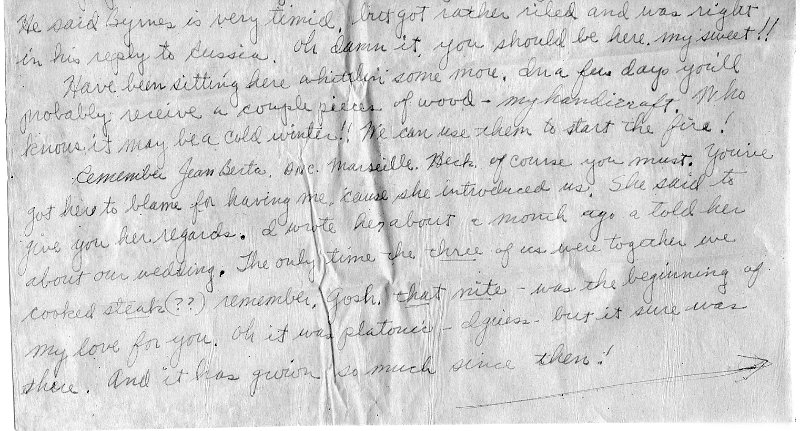 He said Byrnes is very timid, but got rather riled and was right
in his reply to Russia. Oh damn it, you should be here, my sweet!!
Have been sitting here a whittlin' some more. In a few days you'll
probably receive a couple pieces of wood - my handicraft. Who
knows, it may be a cold winter!! We can use them to start the fire!
Remember Jean Berta, Marseille. Heck, of course you must. You've
got her to blame for having me, 'cause she introduced us. She said to
give you her regards. I wrote her about a month ago & told her
about our wedding. The only time the three of us were together we
cooked steak (??) remember. Gosh, that nite - was the beginning of
my love for you. Oh it was platonic - I guess - but it sure was
there. And it has grown so much since then!